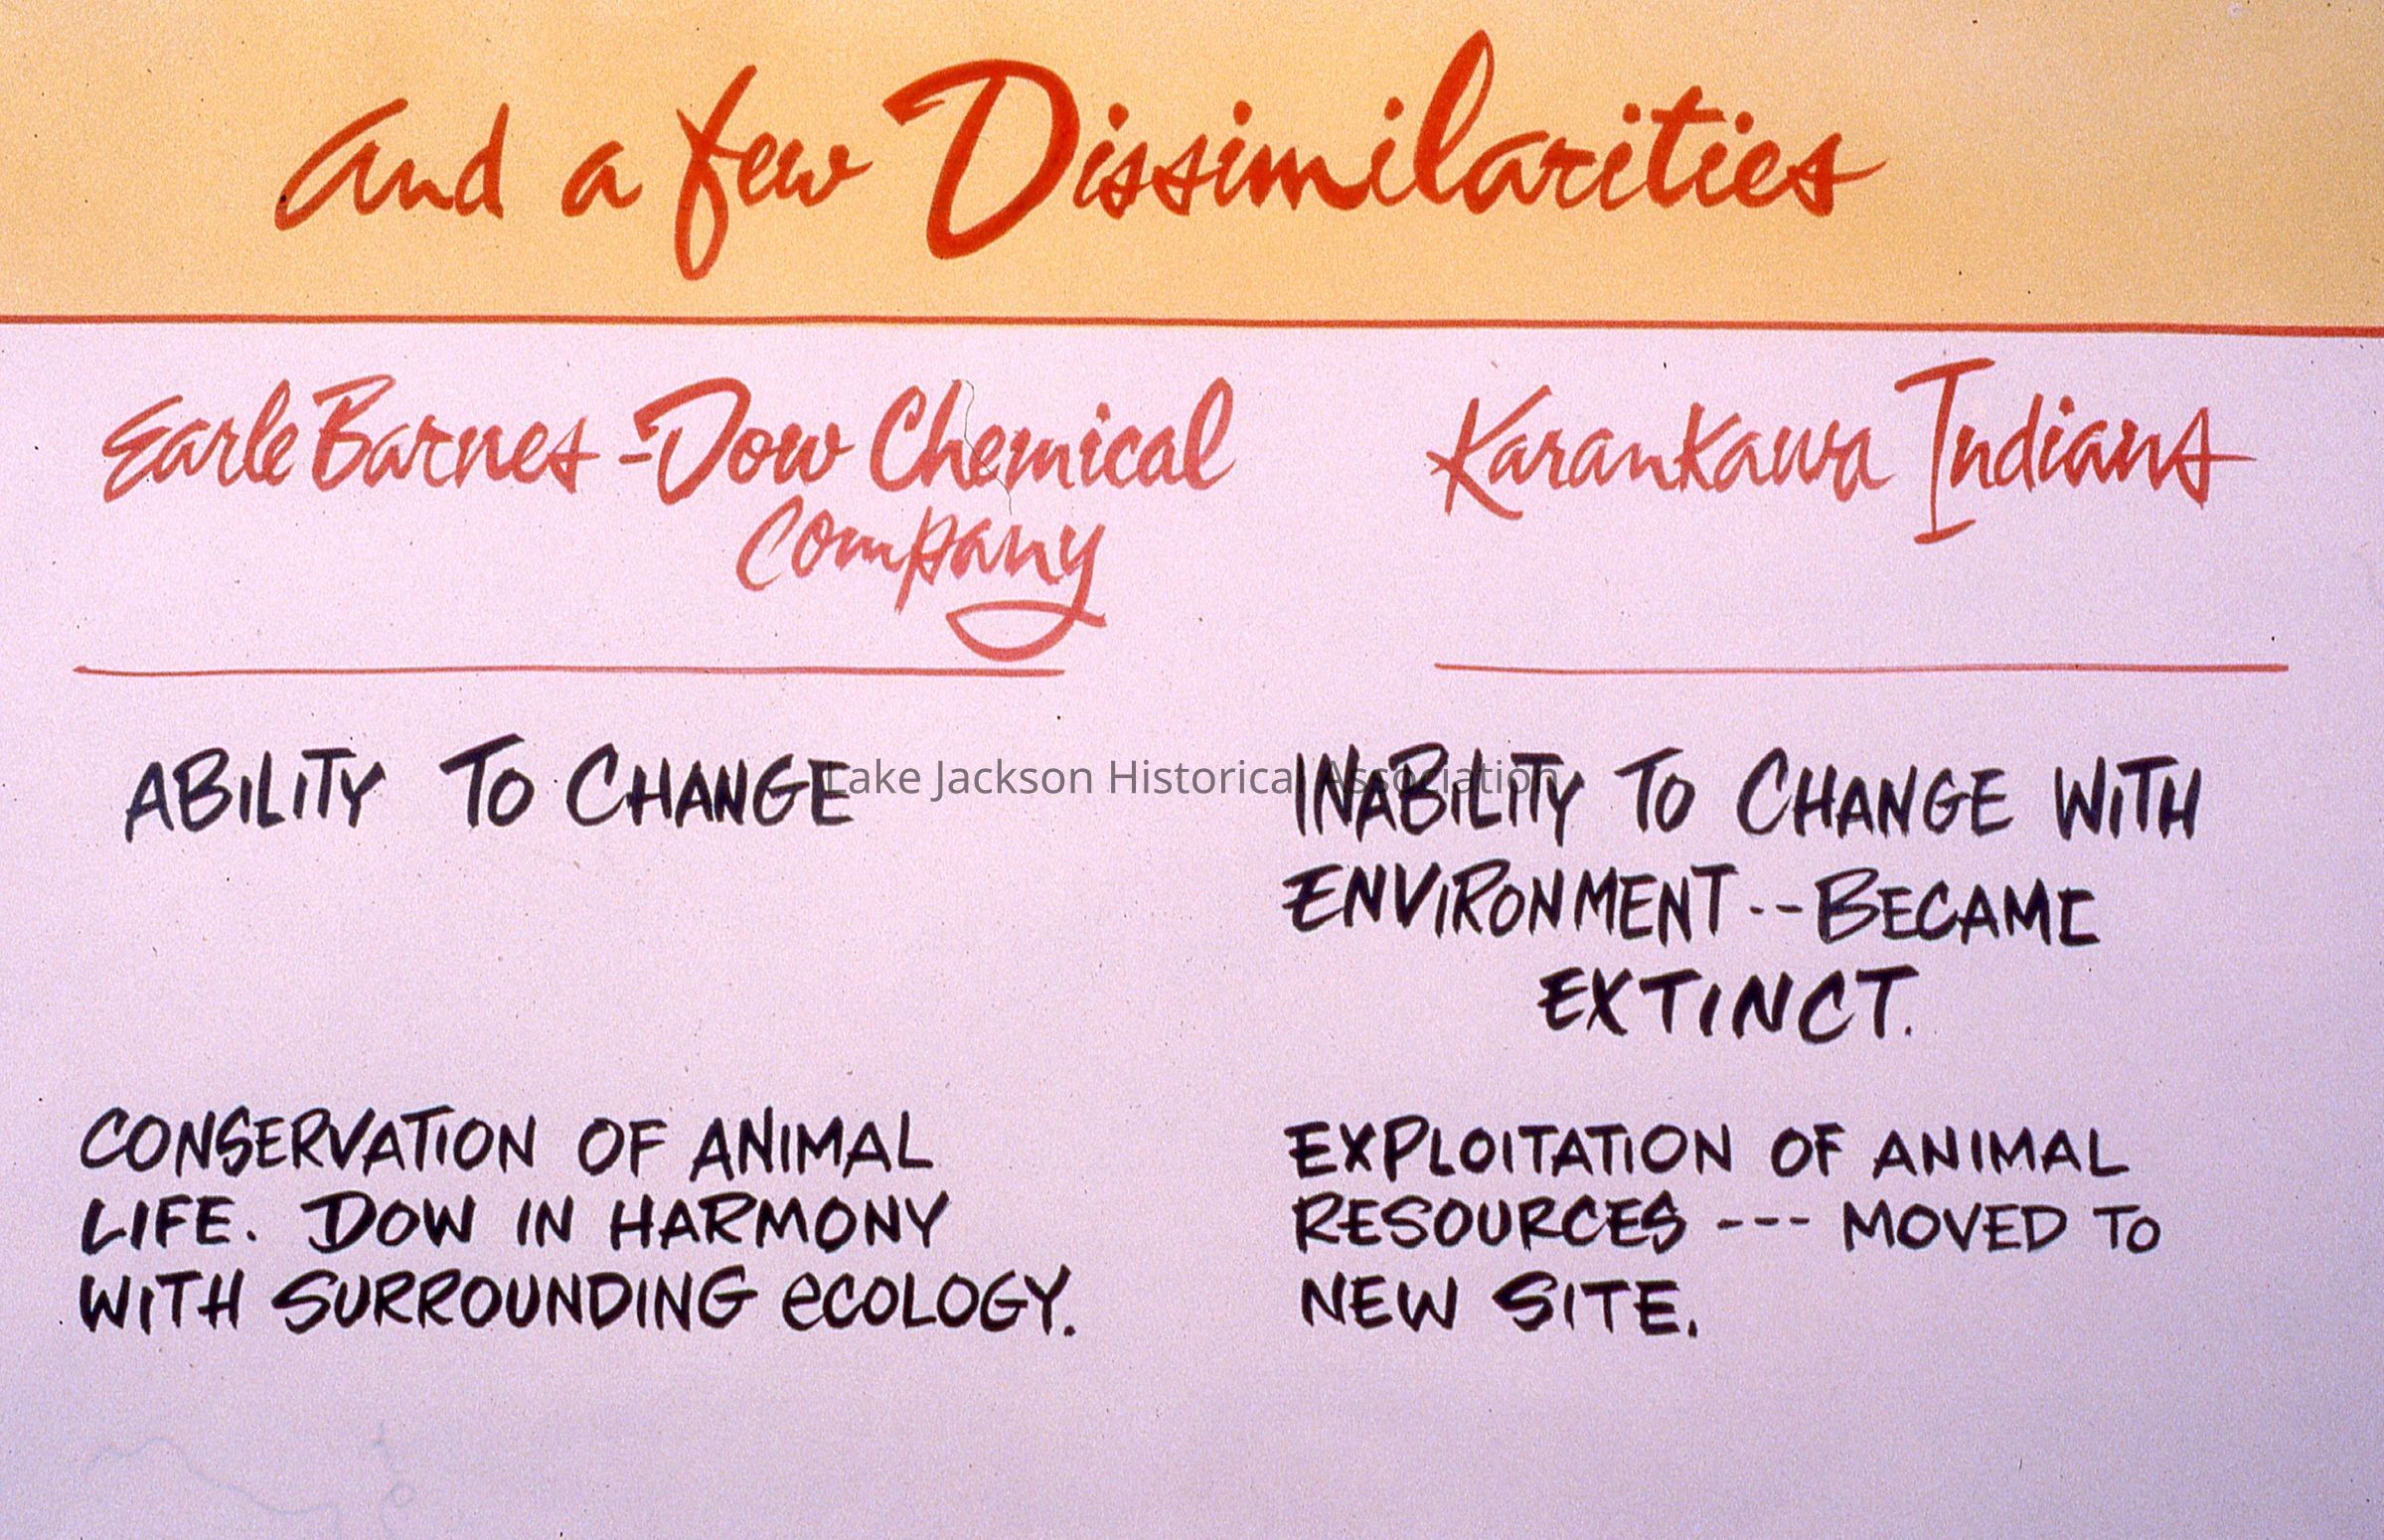 and a few Dissimilarities
Earle Barnes - Dow Chemical
Company
Karankawa Indians
ABILITY TO CHANGE
INABILITY TO CHANGE WITH
ENVIRONMENT -- BECAME
EXTINCT.
CONSERVATION OF ANIMAL
LIFE. DOW IN HARMONY
WITH SURROUNDING eCOLOGY.
EXPLOITATION OF ANIMAL
RESOURCES --- MOVED TO
NEW SITE.
Lake Jackson Historical Association